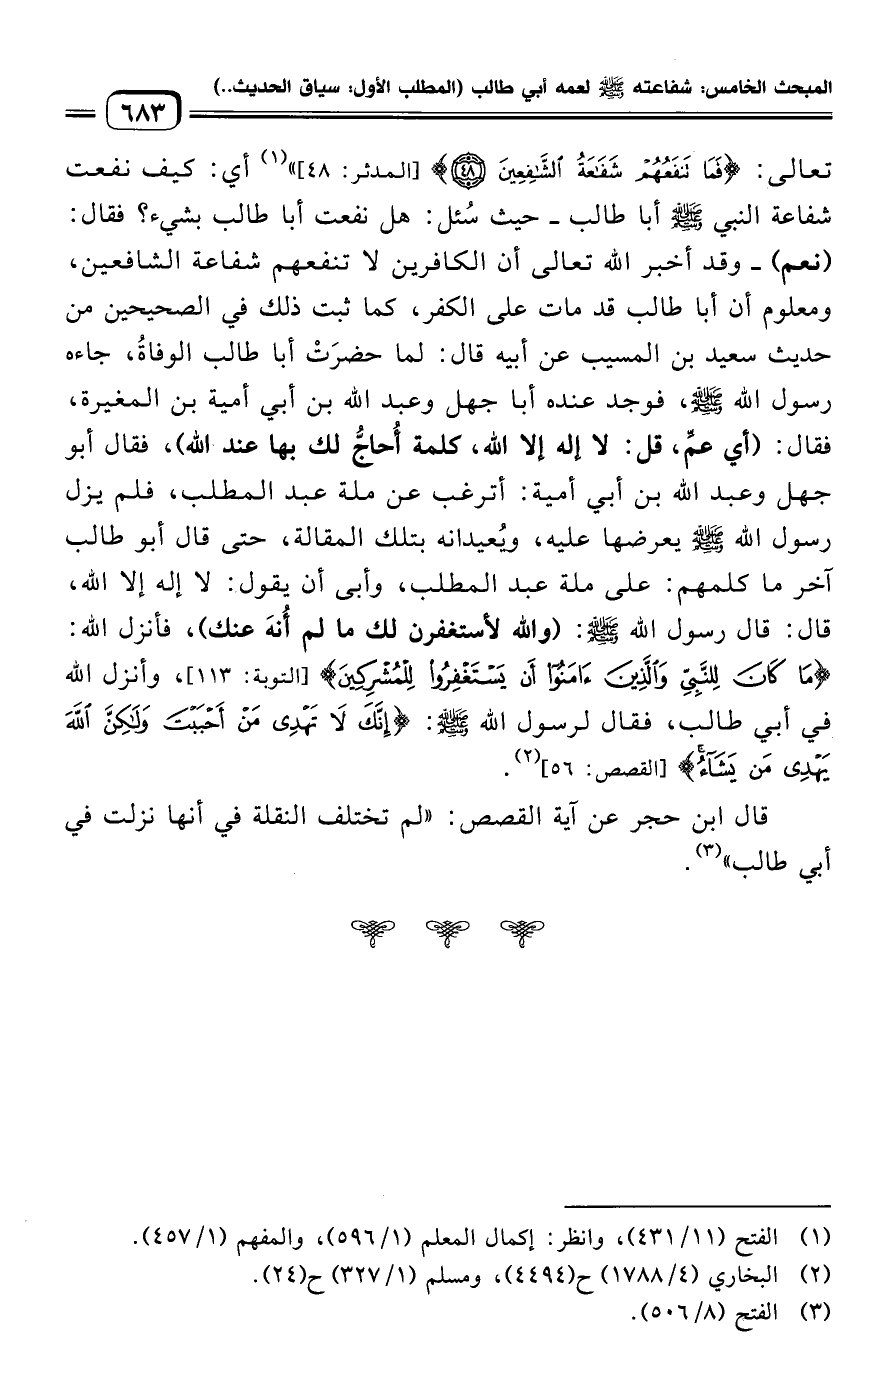 المبحث الخامس: شفاعته ﷺ لعمه أبي طالب (المطلب الأول: سياق الحديث..)
٦٨٣
تعالى: ﴿فَمَا تَنفَعُهُمْ شَفَٰعَةُ ٱلشَّٰفِعِينَ ٤٨﴾ [المدثر: ٤٨]»(١) أي: كيف نفعت
شفاعة النبي ﷺ أبا طالب ـ حيث سُئل: هل نفعت أبا طالب بشيء؟ فقال:
(نعم) ـ وقد أخبر الله تعالى أن الكافرين لا تنفعهم شفاعة الشافعين،
ومعلوم أن أبا طالب قد مات على الكفر، كما ثبت ذلك في الصحيحين من
حديث سعيد بن المسيب عن أبيه قال: لما حضرَتْ أبا طالب الوفاةُ، جاءه
رسول الله ﷺ، فوجد عنده أبا جهل وعبد الله بن أبي أمية بن المغيرة،
فقال: (أي عمِّ، قل: لا إله إلا الله، كلمة أُحاجُّ لك بها عند الله)، فقال أبو
جهل وعبد الله بن أبي أمية: أترغب عن ملة عبد المطلب، فلم يزل
رسول الله ﷺ يعرضها عليه، ويُعيدانه بتلك المقالة، حتى قال أبو طالب
آخر ما كلمهم: على ملة عبد المطلب، وأبى أن يقول: لا إله إلا الله،
قال: قال رسول الله ﷺ: (والله لأستغفرن لك ما لم أُنهَ عنك)، فأنزل الله:
﴿مَا كَانَ لِلنَّبِيِّ وَٱلَّذِينَ ءَامَنُوٓا۟ أَن يَسْتَغْفِرُوا۟ لِلْمُشْرِكِينَ﴾ [التوبة: ١١٣]، وأنزل الله
في أبي طالب، فقال لرسول الله ﷺ: ﴿إِنَّكَ لَا تَهْدِى مَنْ أَحْبَبْتَ وَلَٰكِنَّ ٱللَّهَ
يَهْدِى مَن يَشَآءُ ۚ﴾ [القصص: ٥٦](٢).
قال ابن حجر عن آية القصص: «لم تختلف النقلة في أنها نزلت في
أبي طالب»(٣).
(١) الفتح (٤٣١/١١)، وانظر: إكمال المعلم (٥٩٦/١)، والمفهم (٤٥٧/١).
(٢) البخاري (١٧٨٨/٤) ح(٤٤٩٤)، ومسلم (٣٢٧/١) ح(٢٤).
(٣) الفتح (٥٠٦/٨).